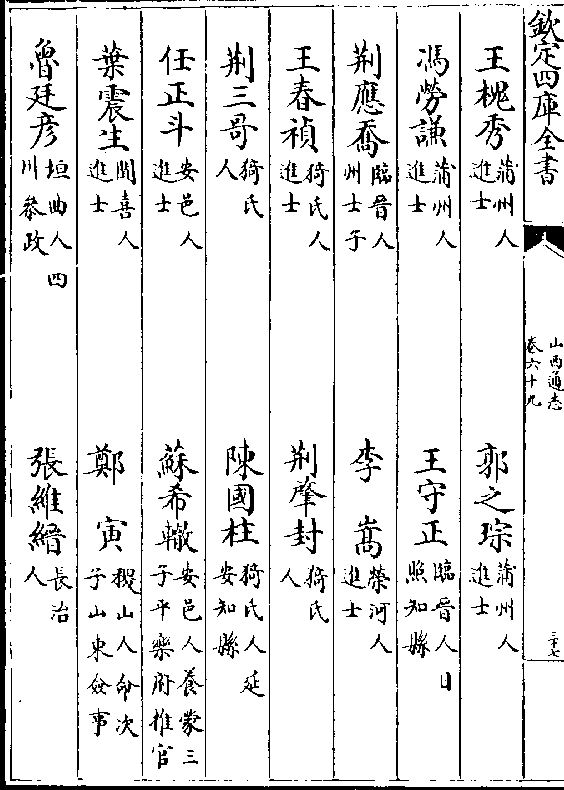 欽定四庫全書
山西通志
卷六十九
三十七
王槐秀 蒲州人進士 郭之琮 蒲州人進士
馮勞謙 蒲州人進士 王守正 臨晉人日照知縣
荆應喬 臨晉人州士子 李嵩 榮河人進士
王春禎 猗氏人進士 荆肇封 猗氏人
荆三哥 猗氏人 陳國柱 猗氏人延安知縣
任正斗 安邑人進士 蘇希轍 安邑人養蒙三子平樂府推官
葉震生 聞喜人進士 鄭寅 稷山人命次子山東僉事
魯廷彥 垣曲人四川叅政 張維縉 長治人